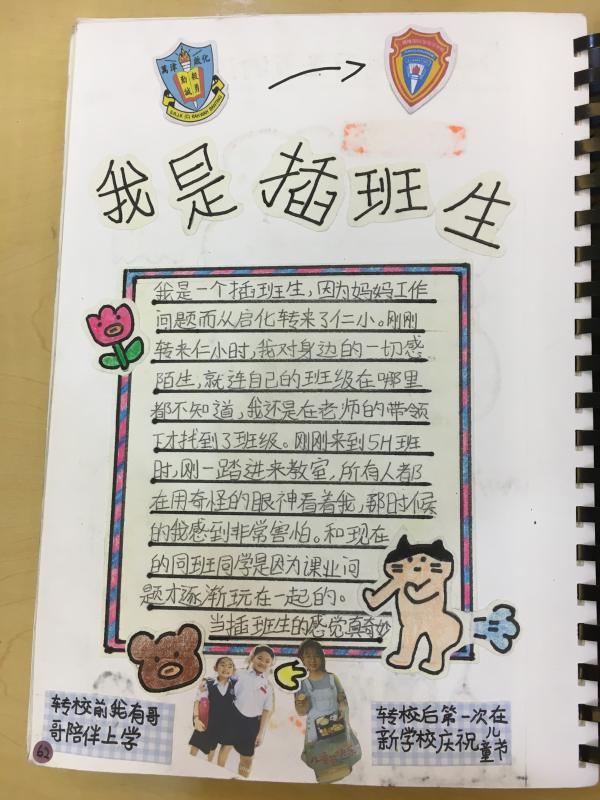 萬津 啟化
勤 毅
誠 勇
我是插班生
我是一个插班生，因为妈妈工作
问题而从启化转来了仁小。刚刚
转来仁小时，我对身边的一切感
陌生，就连自己的班级在哪里
都不知道，我还是在老师的带领
下才找到了班级。刚刚来到5H班
时，刚一踏进来教室，所有人都
在用奇怪的眼神看着我，那时候
的我感到非常害怕。和现在
的同班同学是因为课业问
题才逐渐玩在一起的。
当插班生的感觉真奇妙
转校前我有哥
哥陪伴上学
转校后第一次在
新学校庆祝儿童节
62